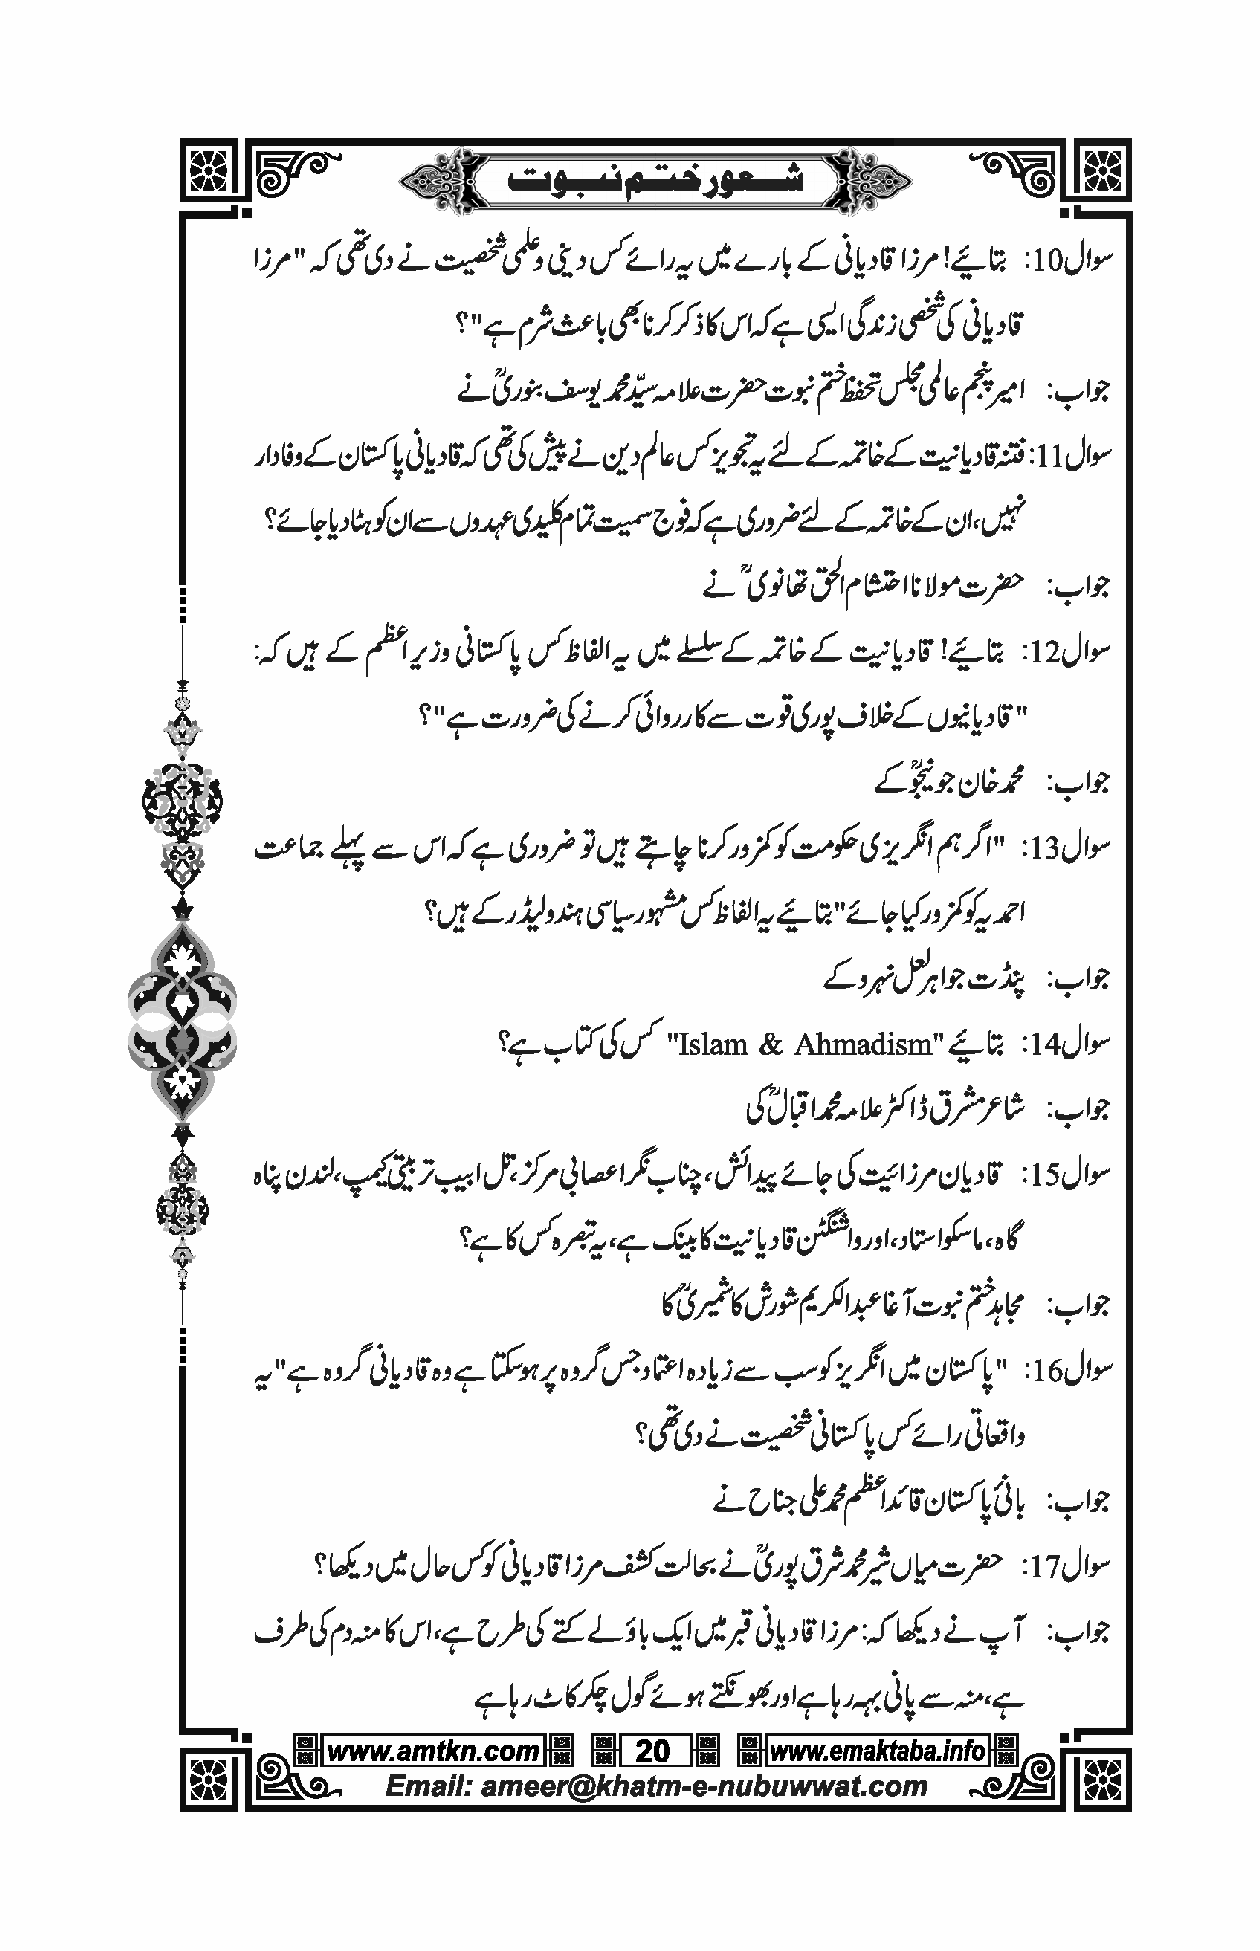 شعور ختم نبوت
سوال10: بتائیے! مرزا قادیانی کے بارے میں یہ رائے کس دینی و علمی شخصیت نے دی تھی کہ "مرزا
قادیانی کی شخصی زندگی ایسی ہے کہ اس کا ذکر کرنا بھی باعث شرم ہے"؟
جواب: امیر پنجم عالمی مجلس تحفظ ختم نبوت حضرت علامہ سیّد محمد یوسف بنوریؒ نے
سوال11: فتنہ قادیانیت کے خاتمہ کے لئے یہ تجویز کس عالم دین نے پیش کی تھی کہ قادیانی پاکستان کے وفادار
نہیں، ان کے خاتمہ کے لئے ضروری ہے کہ فوج سمیت تمام کلیدی عہدوں سے ان کو ہٹا دیا جائے؟
جواب: حضرت مولانا احتشام الحق تھانویؒ نے
سوال12: بتائیے! قادیانیت کے خاتمہ کے سلسلے میں یہ الفاظ کس پاکستانی وزیر اعظم کے ہیں کہ:
"قادیانیوں کے خلاف پوری قوت سے کارروائی کرنے کی ضرورت ہے"؟
جواب: محمد خان جونیجوؒ کے
سوال13: "اگر ہم انگریزی حکومت کو کمزور کرنا چاہتے ہیں تو ضروری ہے کہ اس سے پہلے جماعت
احمدیہ کو کمزور کیا جائے" بتائیے یہ الفاظ کس مشہور سیاسی ہندو لیڈر کے ہیں؟
جواب: پنڈت جواہر لعل نہرو کے
سوال14: بتائیے "Islam & Ahmadism" کس کی کتاب ہے؟
جواب: شاعر مشرق ڈاکٹر علامہ محمد اقبالؒ کی
سوال15: قادیان مرزائیت کی جائے پیدائش، چناب نگر اعصابی مرکز، تل ابیب تربیتی کیمپ، لندن پناہ
گاہ، ماسکو استاد، اور واشنگٹن قادیانیت کا بینک ہے، یہ تبصرہ کس کا ہے؟
جواب: مجاہد ختم نبوت آغا عبدالکریم شورش کاشمیریؒ کا
سوال16: "پاکستان میں انگریز کو سب سے زیادہ اعتماد جس گروہ پر ہو سکتا ہے وہ قادیانی گروہ ہے" یہ
واقعاتی رائے کس پاکستانی شخصیت نے دی تھی؟
جواب: بانیٔ پاکستان قائد اعظم محمد علی جناح نے
سوال17: حضرت میاں شیر محمد شرق پوریؒ نے بحالت کشف مرزا قادیانی کو کس حال میں دیکھا؟
جواب: آپ نے دیکھا کہ: مرزا قادیانی قبر میں ایک باؤلے کتے کی طرح ہے، اس کا منہ دم کی طرف
ہے، منہ سے پانی بہہ رہا ہے اور بھونکتے ہوئے گول چکر کاٹ رہا ہے
www.amtkn.com 20 www.emaktaba.info
Email: ameer@khatm-e-nubuwwat.com